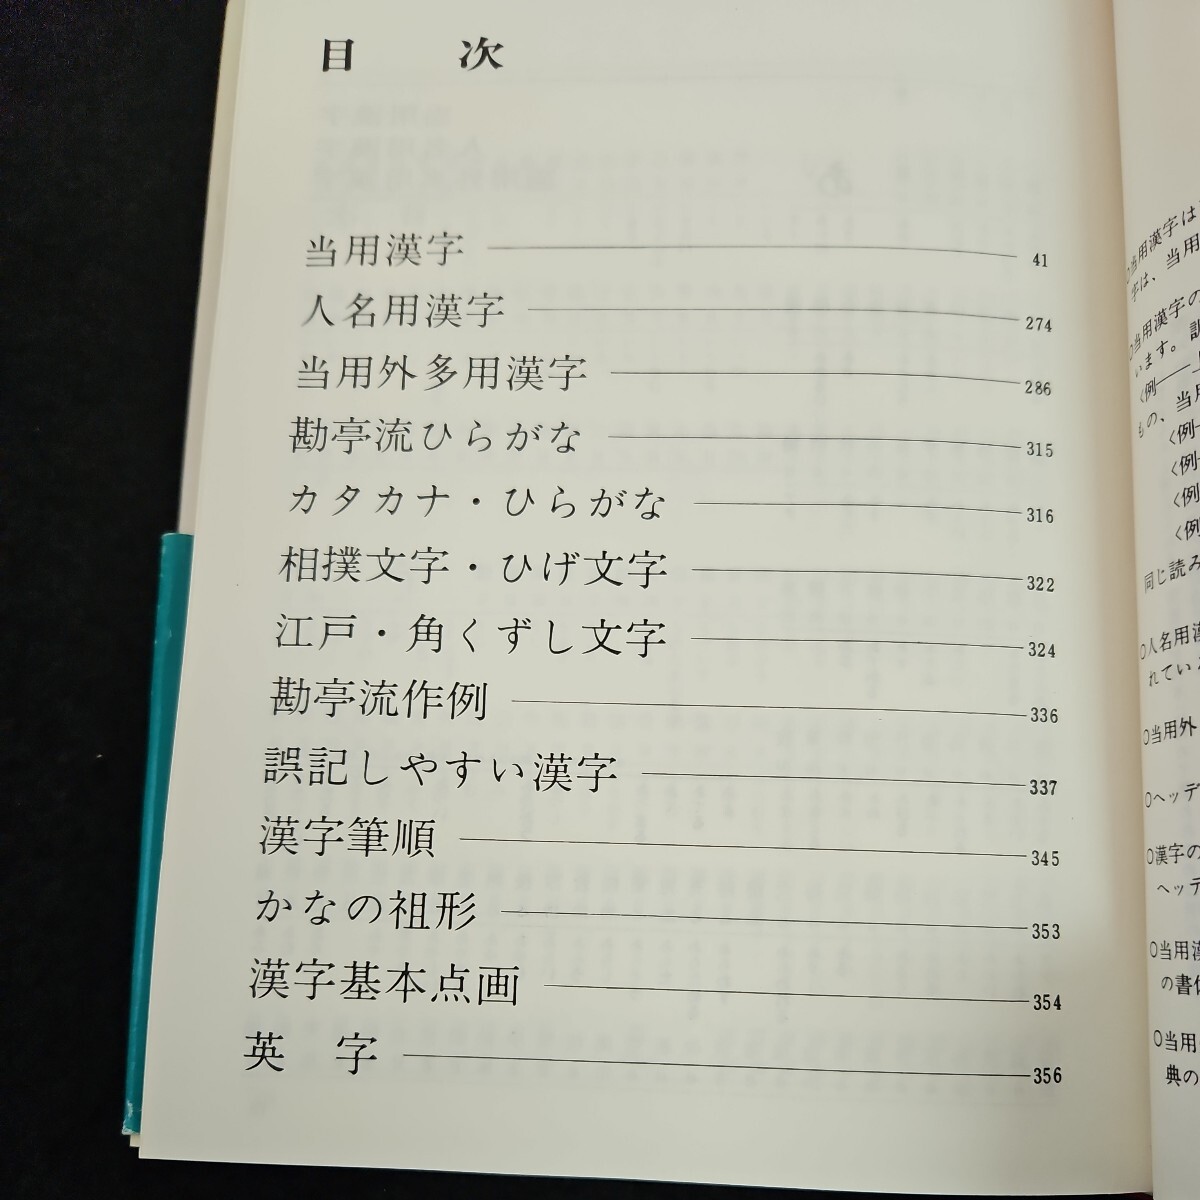 目 次
当用漢字 41
人名用漢字 274
当用外多用漢字 286
勘亭流ひらがな 315
カタカナ・ひらがな 316
相撲文字・ひげ文字 322
江戸・角くずし文字 324
勘亭流作例 336
誤記しやすい漢字 337
漢字筆順 345
かなの祖形 353
漢字基本点画 354
英 字 356
○当用漢字は
字は、当用
○当用漢字の
います。
〈例
もの、当用
〈例
〈例
〈例
〈例
同じ読み
○人名用漢
れている
○当用外
○ヘッデ
○漢字の
ヘッデ
○当用漢
の書体
○当用
典の